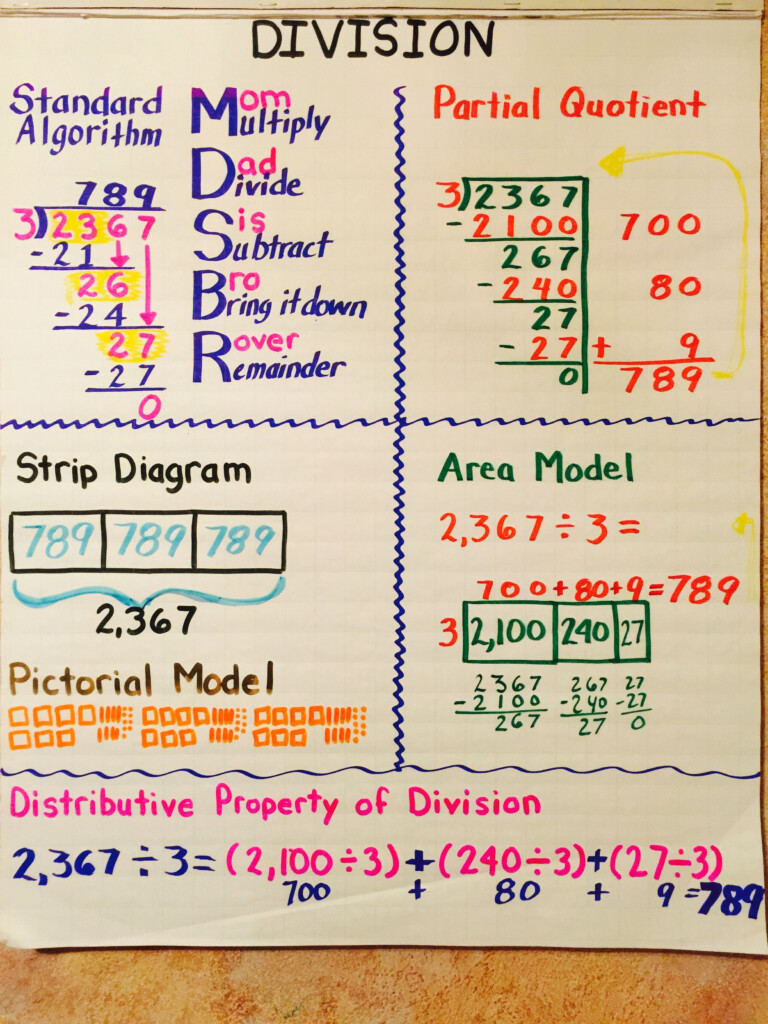 DIVISION
Standard
Algorithm
789
3)2367
-21
26
-24
27
-27
0
Mom
Multiply
Dad
Divide
Sis
Subtract
Bro
Bring it down
Rover
Remainder
Partial Quotient
3)2367
-2100 700
267
-240 80
27
-27 + 9
0 789
Strip Diagram
789 789 789
2,367
Pictorial Model
Area Model
2,367÷3=
700+80+9=789
3 2,100 240 27
2367 267 27
-2100 -240 -27
267 27 0
Distributive Property of Division
2,367÷3=(2,100÷3)+(240÷3)+(27÷3)
700 + 80 + 9=789